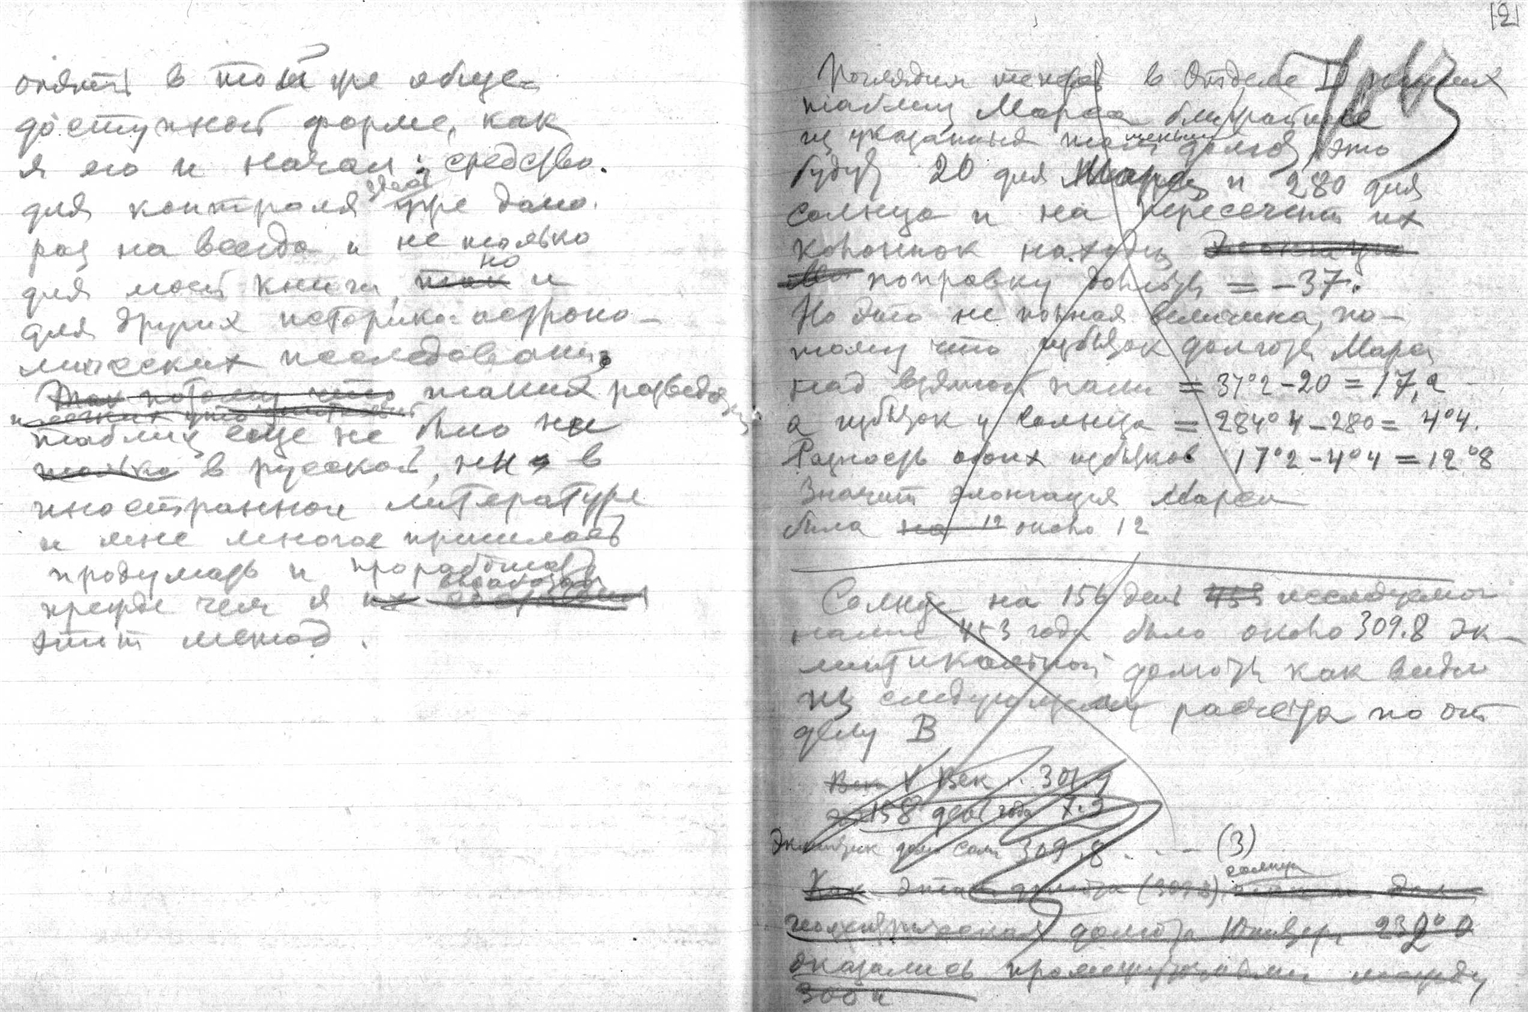 опять в той же обще-
доступной форме, как
я его и начал: средство.
для контроля уже дано.
раз на всегда и не только
для моей книги, так но и
для других историко-астроно-
мических исследований.
Так потому что таких разведоч
таблиц еще не было ни
только в русской, ни в
иностранной литературе
и мне многое пришлось
продумать и проработать
прежде чем я их
этот метод.
12
Поглядим теперь в Отделе II
таблиц Марса ближайшие
из указанных там меньших долгот, это
будут 20 для Марса и 280 для
солнца и на пересечении их
колонок находим
поправку долготы = -37.
Но это не полная величина, по-
тому что избыток долготы Марса
над взятой нами = 37°2 - 20 = 17,2
а избыток у Солнца = 284°4 - 280 = 4°4.
Разность обоих избытков 17°2 - 4°4 = 12°8
Значит элонгация Марса
была на 12 около 12
Солнце на 156 день 453 исследуемого
нами 453 года было около 309.8 эк-
липтикальной долготы как видно
из следующего расчета по от
делу В
Век V Век .. 301.9
158 день года 7.9
Эклиптик долг солн 309.8 . . - - (3)
Как эта долгота (309.8) солнца
гелиоцентрическая долгота Юпитера 232°0
оказались промежуточными между
300 и